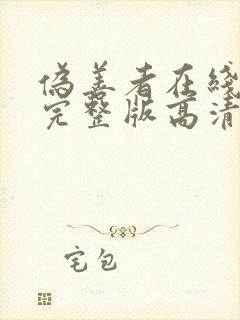 偽善者在线
完整版高清
宅包